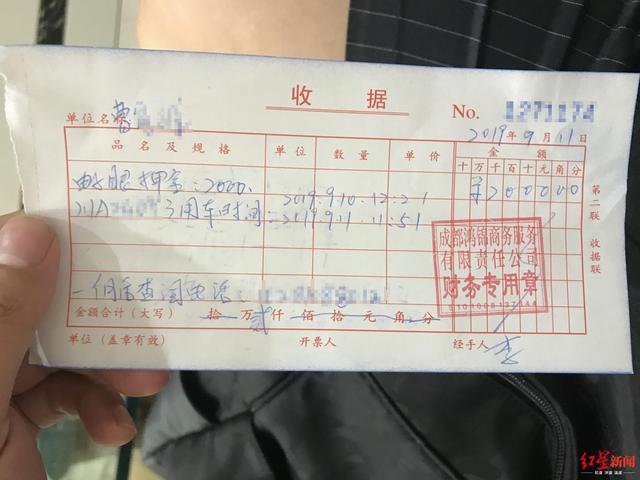 收据
No. 1271174
单位名 曹
2019年9月11日
品名及规格 单位 数量 单价 金额
十万千百十元角分
电子眼押金:2000. ¥200000
川A 用车时间:2019.9.10.12:21
2019.9.11 11:51
成都鸿锦商务服务
有限责任公司
财务专用章
一个月后查询电话:
金额合计(大写) 拾 万 贰 仟 佰 拾 元 角 分
单位(盖章有效) 开票人 经手人 李
第二联 收据联
红星新闻